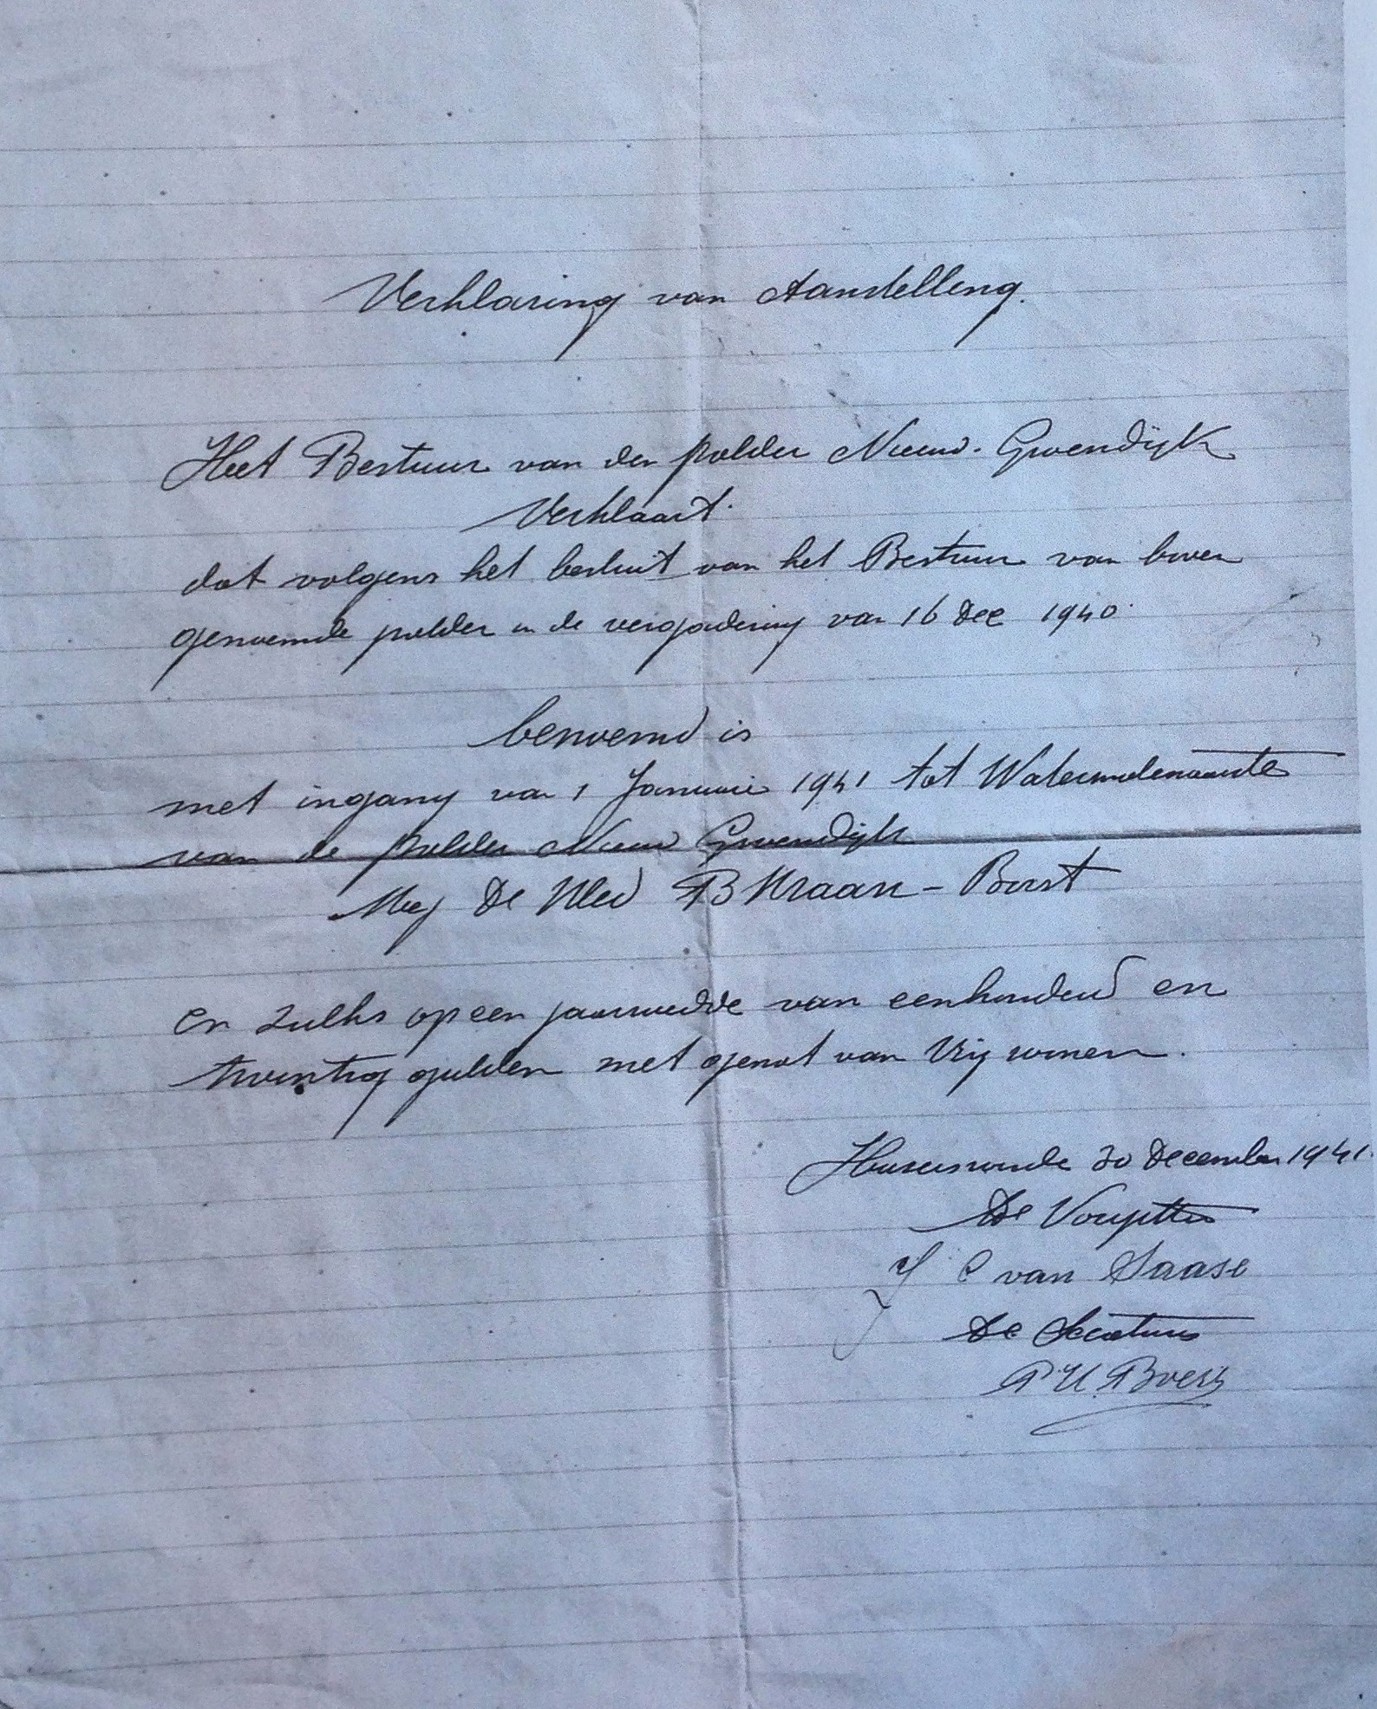 Verklaring van Aanstelling.
Het Bestuur van den polder Nieuw-Groendijk
Verklaart.
dat volgens het besluit van het Bestuur van boven
genoemde polder in de vergadering van 16 Dec 1940.
benoemd is
met ingang van 1 Januari 1941 tot Watermolenaarster
van de polder Nieuw Groendijk
Mej De Wed B Kraan - Borst
en zulks op een jaarwedde van eenhonderd en
twintig gulden met genot van Vrij wonen.
30 December 1941.
De Voorzitter
J C van Saase
De Secretaris
P.H. Boers